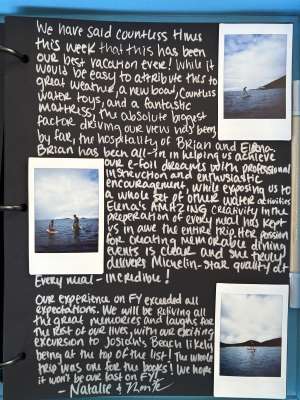 We have said countless times
this week that this has been
our best vacation ever! While it
would be easy to attribute this to
great weather, a new boat, countless
water toys, and a fantastic
mattress, the absolute biggest
factor driving our view has been,
by far, the hospitality of Brian and Elena.
Brian has been all-in in helping us achieve
our e-foil dreams with professional
instruction and enthusiastic
encouragement, while exposing us to
a whole set of other water activities
Elena's AMAZING creativity in the
preparation of every meal has kept
us in awe the entire trip. Her passion
for creating memorable dining
events is clear and she truly
delivers Michelin-star quality at
every meal - incredible!
Our experience on FY exceeded all
expectations. We will be reliving all
the great memories and laughs for
the rest of our lives, with our exciting
excursion to Josiah's Beach likely
being at the top of the list! The whole
trip was one for the books! We hope
it won't be our last on FY!
- Natalie &